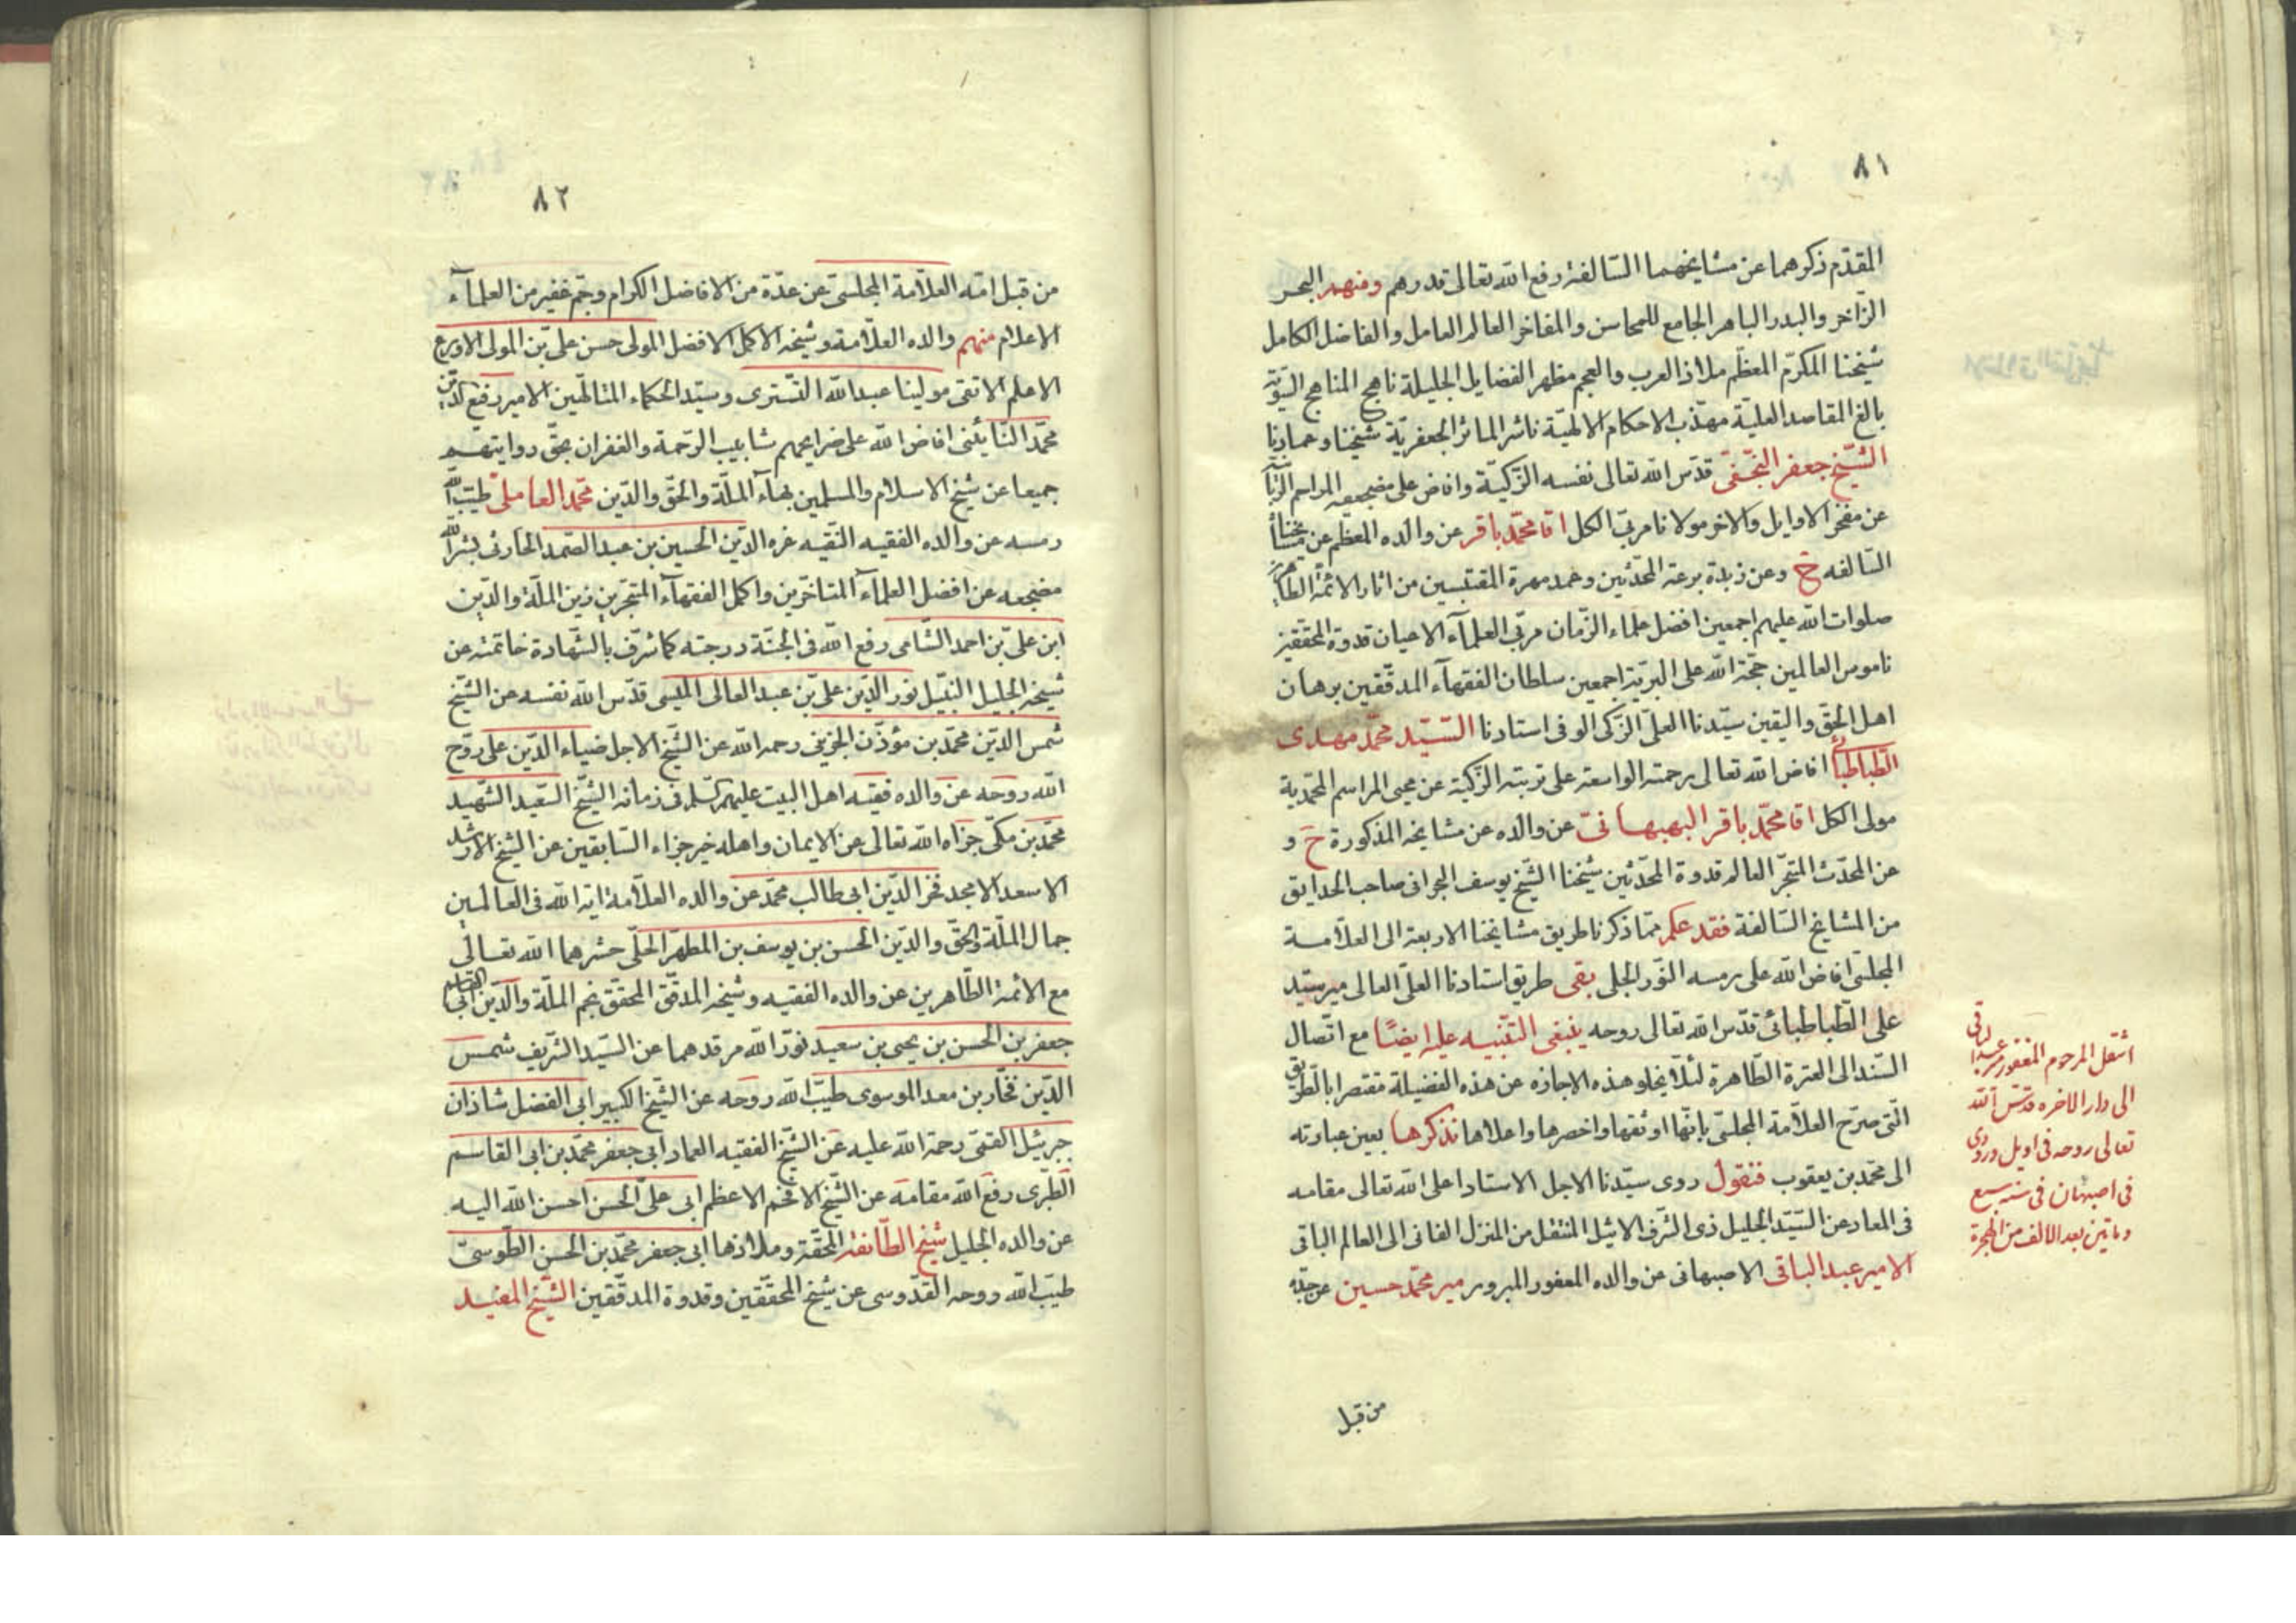 ٨١
المقدّم ذكرهما عن مشايخهما السّالفة رفع الله تعالى قدرهم ومنهم البحر
الزّاخر والبدر الباهر الجامع للمحاسن والمفاخر العالم العامل والفاضل الكامل
شيخنا المكرّم المعظّم ملاذ العرب والعجم مظهر الفضايل الجليلة ناهج المناهج السّويّة
بالغ المقاصد العليّة مهذّب الاحكام الالهيّة ناشر الماثر الجعفريّة شيخنا وعمادنا
الشّيخ جعفر النّجفى قدّس الله تعالى نفسه الزّكيّة وافاض على مضجعه المراسم
عن مفخر الاوايل والاخر مولانا مربّى الكل اقا محمّد باقر عن والده المعظم عن مشايخنا
السّالفه ح وعن زبدة برعة المحدّثين وعمد مهرة المقتبسين من اثار الائمّة الطّاهرين
صلوات الله عليهم اجمعين افضل علماء الزّمان مربّى العلمآء الاعيان قدوة المحقّقين
ناموس العالمين حجّة الله على البريّة اجمعين سلطان الفقهآء المدقّقين برهان
اهل الحقّ واليقين سيّدنا العلىّ الزّكى الوفى استادنا السّيّد محمّد مهدى
الطّباطبائى افاض الله تعالى رحمته الواسعة على تربته الزّكيّة عن محيى المراسم المحمّدية
مولى الكل اقا محمّد باقر البهبهانىّ عن والده عن مشايخه المذكورة ح و
عن المحدّث المتبحّر العالم قدوة المحدّثين شيخنا الشّيخ يوسف البحرانى صاحب الحدايق
من المشايخ السّالفة فقد علم ممّا ذكرنا طريق مشايخنا الاربعة الى العلّامة
المجلسى افاض الله على رمسه النّور الجلى بقى طريق استادنا العلىّ العالى مير سيّد
على الطّباطبائى قدّس الله تعالى روحه ينبغى التّنبيه عليه ايضًا مع اتّصال
السّند الى العترة الطّاهرة لئلّا يخلو هذه الاجازه عن هذه الفضيلة مقتصرا بالطّريق
الّتى صرّح العلّامة المجلسى بانّها اوثقها واخصرها واعلاها نذكرها بعين عبارته
الى محمّد بن يعقوب فنقول روى سيّدنا الاجل الاستاد اعلى الله تعالى مقامه
فى المعاد عن السّيّد الجليل ذى الشّرف الاثيل المنتقل من المنزل الفانى الى العالم الباقى
الامير عبد الباقى الاصبهانى عن والده المغفور المبرور مير محمّد حسين عن جدّه
من قبل
انتقل المرحوم المغفور مير عبد الباقى
الى دار الاخره قدّس الله
تعالى روحه فى اويل ورودى
فى اصبهان فى سنه سبع
وماتين بعد الالف من الهجرة
٨٢
من قبل امّه العلّامة المجلسى عن عدّة من الافاضل الكرام وجم غفير من العلمآء
الاعلام منهم والده العلّامة وشيخه الاكمل الافضل المولى حسن على بن المولى الاورع
الاعلم الاتقى مولينا عبد الله التّسترى وسيّد الحكماء المتالّهين الامير رفيع الدّين
محمّد النّائينى افاض الله على ضرايحهم شابيب الرّحمة والغفران بحقّ روايتهم
جميعا عن شيخ الاسلام والمسلمين بهآء الملّة والحقّ والدّين محمّد العاملى طيّب الله
رمسه عن والده الفقيه النّقيه عزه الدّين الحسين بن عبد الصّمد الحارثى بشر الله
مضجعه عن افضل العلمآء المتاخّرين واكمل الفقهآء المتبحّرين زين الملّة والدّين
ابن علىّ بن احمد الشّامى رفع الله فى الجنّة درجته كما شرّف بالشّهادة خاتمته عن
شيخه الجليل النّبيل نور الدّين على بن عبد العالى الميسى قدّس الله نفسه عن الشّيخ
شمس الدّين محمّد بن مؤذّن الجزينى رحمه الله عن الشّيخ الاجل ضياء الدّين على روّح
الله روحه عن والده فقيه اهل البيت عليهم السّلم فى زمانه الشّيخ السّعيد الشّهيد
محمّد بن مكّى جزاه الله تعالى عن الايمان واهله خير جزاء السّابقين عن الشّيخ الارشد
الاسعد الامجد فخر الدّين ابى طالب محمّد عن والده العلّامة اية الله فى العالمين
جمال الملّة والحقّ والدّين الحسن بن يوسف بن المطهّر الحلّى حشرهما الله تعالى
مع الائمة الطّاهرين عن والده الفقيه وشيخه المدقّق المحقّق نجم الملّة والدّين ابى القاسم
جعفر بن الحسن بن يحيى بن سعيد نوّر الله مرقدهما عن السّيّد الشّريف شمس
الدّين فخّار بن معد الموسوى طيّب الله روحه عن الشّيخ الكبير ابى الفضل شاذان
جبرئيل القمّى رحمة الله عليه عن الشّيخ الفقيه العماد ابى جعفر محمّد بن ابى القاسم
الطّبرى رفع الله مقامه عن الشّيخ الافخم الاعظم ابى علىّ الحسن احسن الله اليه
عن والده الجليل شيخ الطّائفة المحقّة وملاذها ابى جعفر محمّد بن الحسن الطّوسىّ
طيّب الله روحه القدّوسى عن شيخ المحقّقين وقدوة المدقّقين الشّيخ المفيد